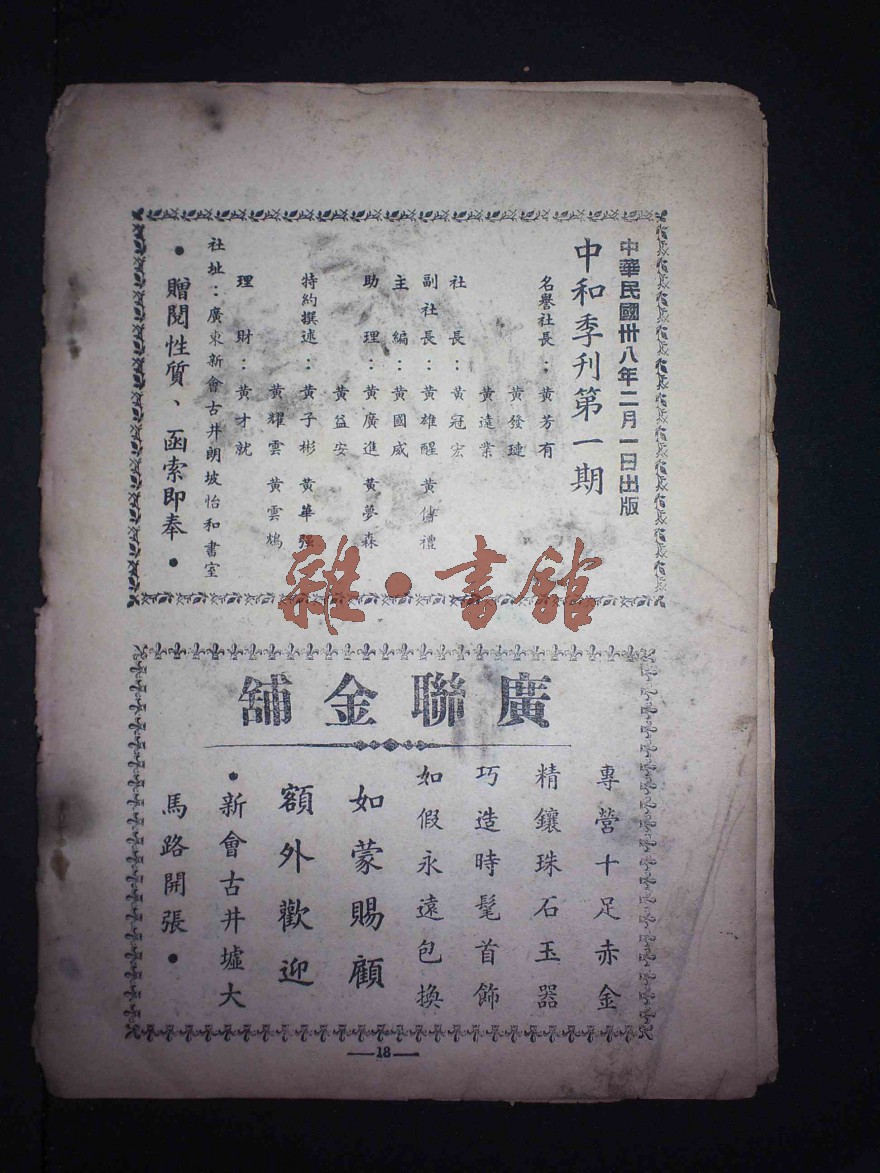 中華民國卅八年二月一日出版
中和季刊第一期
名譽社長：黃芳有
黃發璉
黃遠業
社長：黃冠宏
副社長：黃雄醒 黃傳禮
主編：黃國威
助理：黃廣進 黃夢森
黃益安
特約撰述：黃子彬 黃華强
黃耀雲 黃雲鵷
理財：黃才就
社址：廣東新會古井朗坡怡和書室
•贈閱性質、函索即奉•
雜•書館
廣聯金舖
專營十足赤金
精鑲珠石玉器
巧造時髦首飾
如假永遠包換
如蒙賜顧
額外歡迎
•新會古井墟大
馬路開張•
—18—